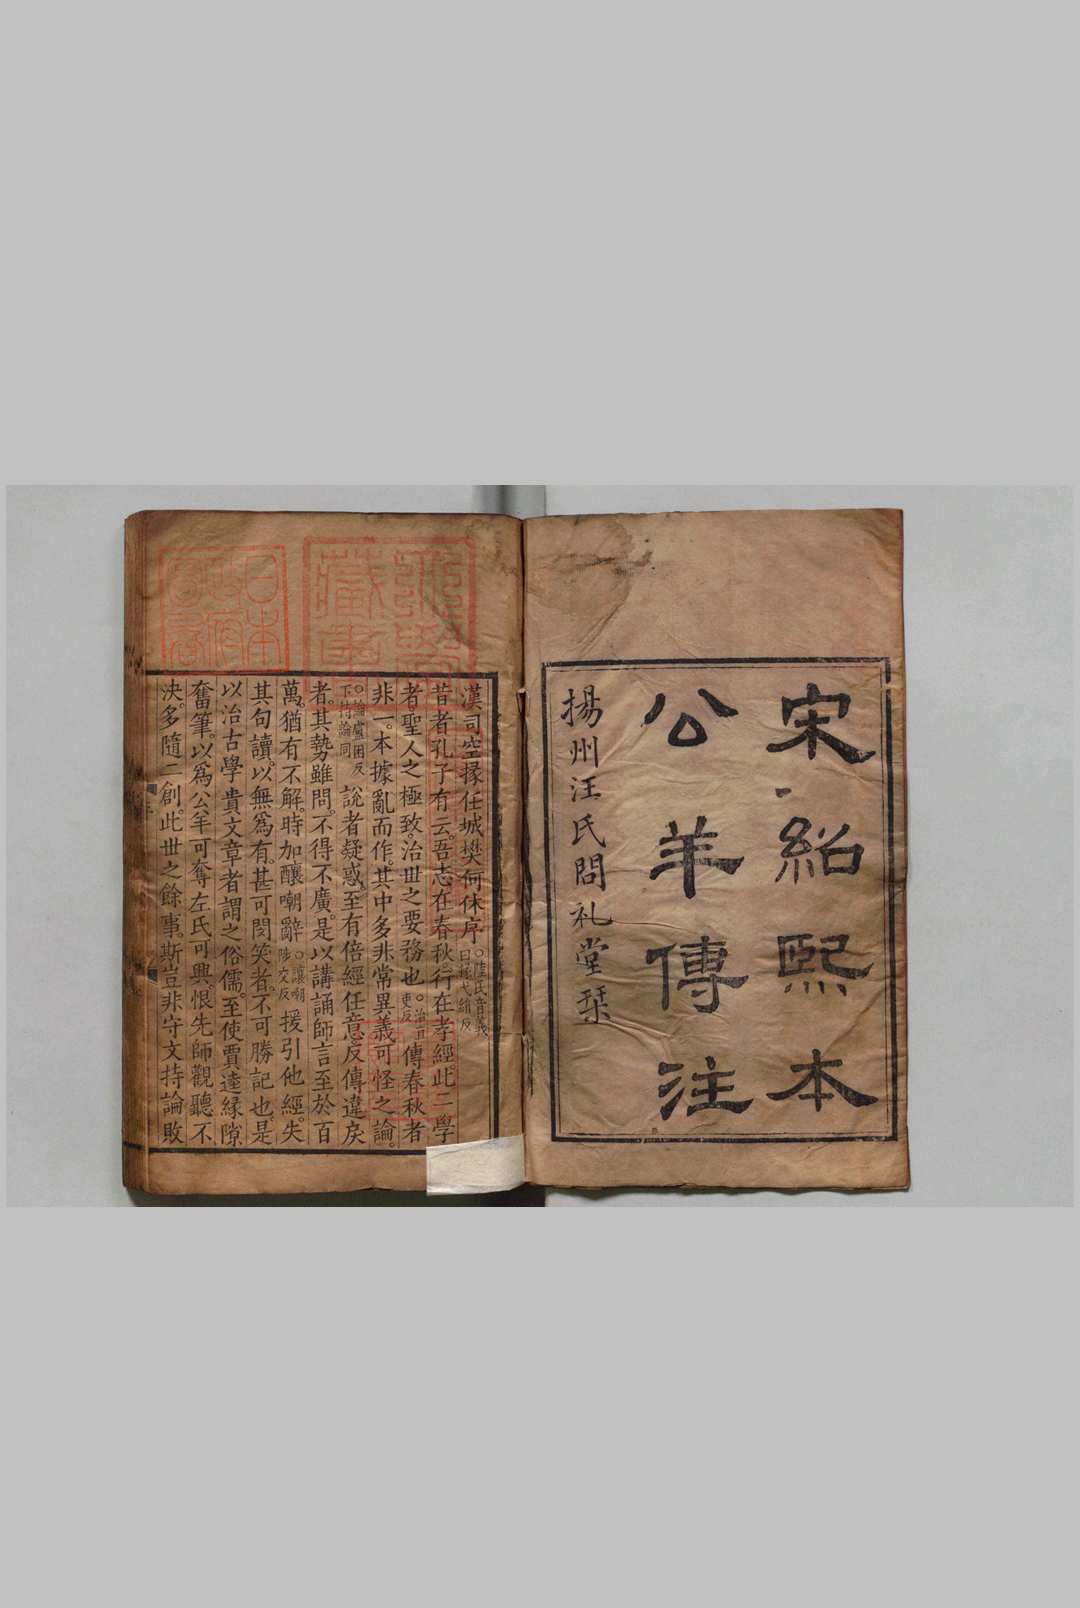 宋紹熙本
公羊傳注
揚州汪氏問礼堂栞
漢司空掾任城樊何休序
昔者孔子有云。吾志在春秋。行在孝經。此二學
者。聖人之極致。治世之要務也。傳春秋者
非一。本據亂而作。其中多非常異義可怪之論。
○論盧困反
下持論同
說者疑惑。至有倍經任意。反傳違戾
者。其勢雖問。不得不廣。是以講誦師言至於百
萬。猶有不解。時加釀嘲辭
○讓嘲
陟交反
援引他經。失
其句讀。以無爲有。甚可閔笑者。不可勝記也。是
以治古學貴文章者謂之俗儒。至使賈逵緣隙
奮筆。以爲公羊可奪。左氏可興。恨先師觀聽不
決。多隨二創。此世之餘事。斯豈非守文持論敗